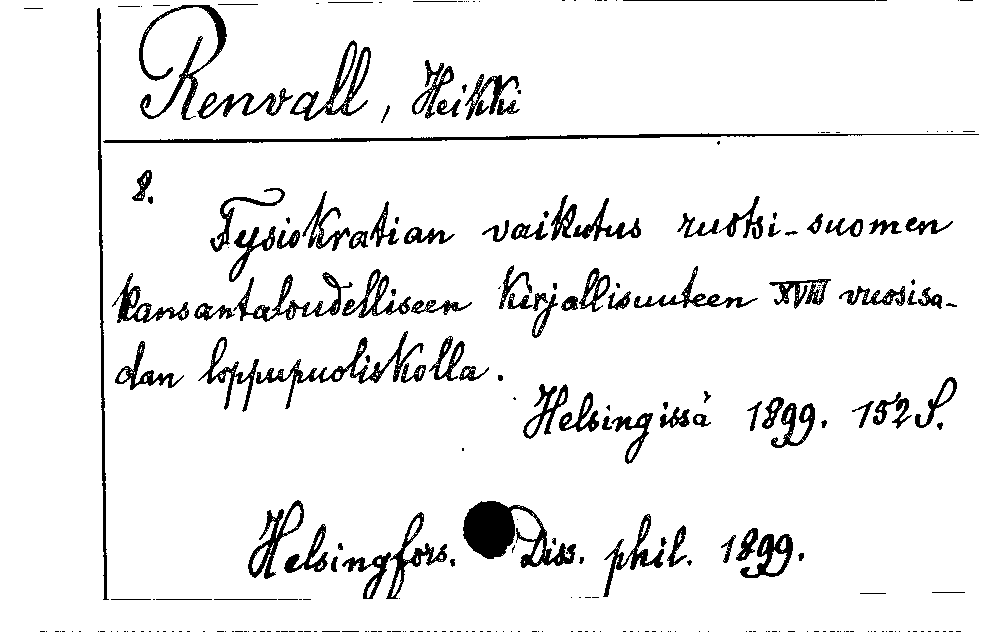 Renvall, Heikki
8.
Fysiokratian vaikutus ruotsi-suomen
kansantaloudelliseen kirjallisuuteen XVIII vuosisa-
dan loppupuoliskolla.
Helsingissä 1899. 152 S.
Helsingfors. Diss. phil. 1899.